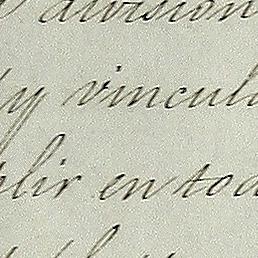 division
y vincul
plir en tod